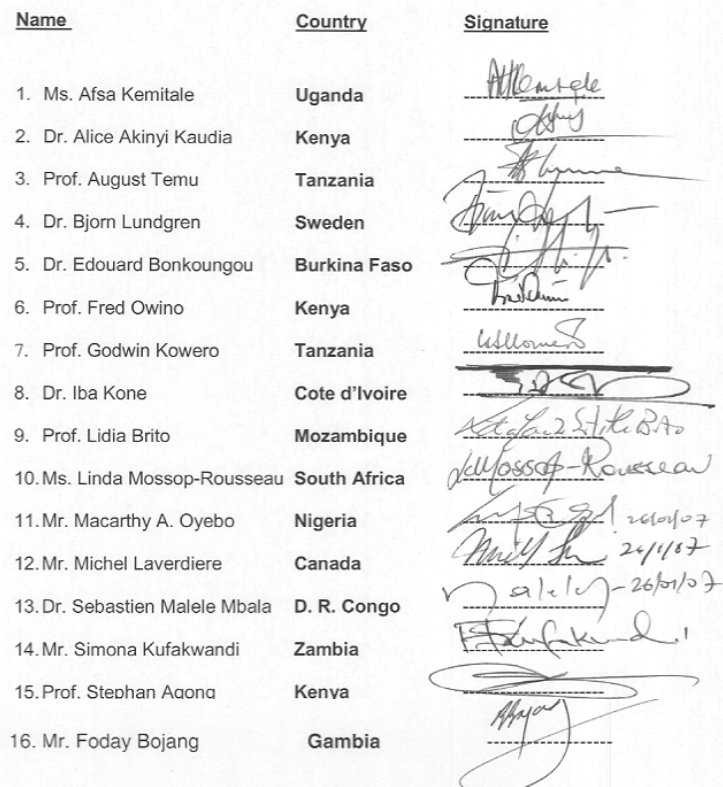 Name Country Signature
1. Ms. Afsa Kemitale Uganda
2. Dr. Alice Akinyi Kaudia Kenya
3. Prof. August Temu Tanzania
4. Dr. Bjorn Lundgren Sweden
5. Dr. Edouard Bonkoungou Burkina Faso
6. Prof. Fred Owino Kenya
7. Prof. Godwin Kowero Tanzania
8. Dr. Iba Kone Cote d'Ivoire
9. Prof. Lidia Brito Mozambique
10. Ms. Linda Mossop-Rousseau South Africa LMossop-Rousseau
11. Mr. Macarthy A. Oyebo Nigeria 26/01/07
12. Mr. Michel Laverdiere Canada 26/1/07
13. Dr. Sebastien Malele Mbala D. R. Congo 26/01/07
14. Mr. Simona Kufakwandi Zambia
15. Prof. Stephan Agong Kenya
16. Mr. Foday Bojang Gambia